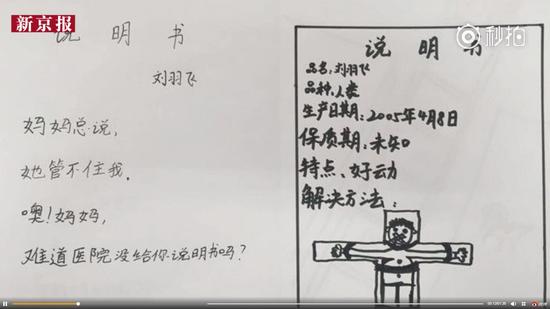 新京报
秒拍
说明书
刘羽飞
妈妈总说，
她管不住我。
噢！妈妈，
难道医院没给你说明书吗？
说明书
品名：刘羽飞
品种：人类
生产日期：2005年4月8日
保质期：未知
特点：好动
解决方法：